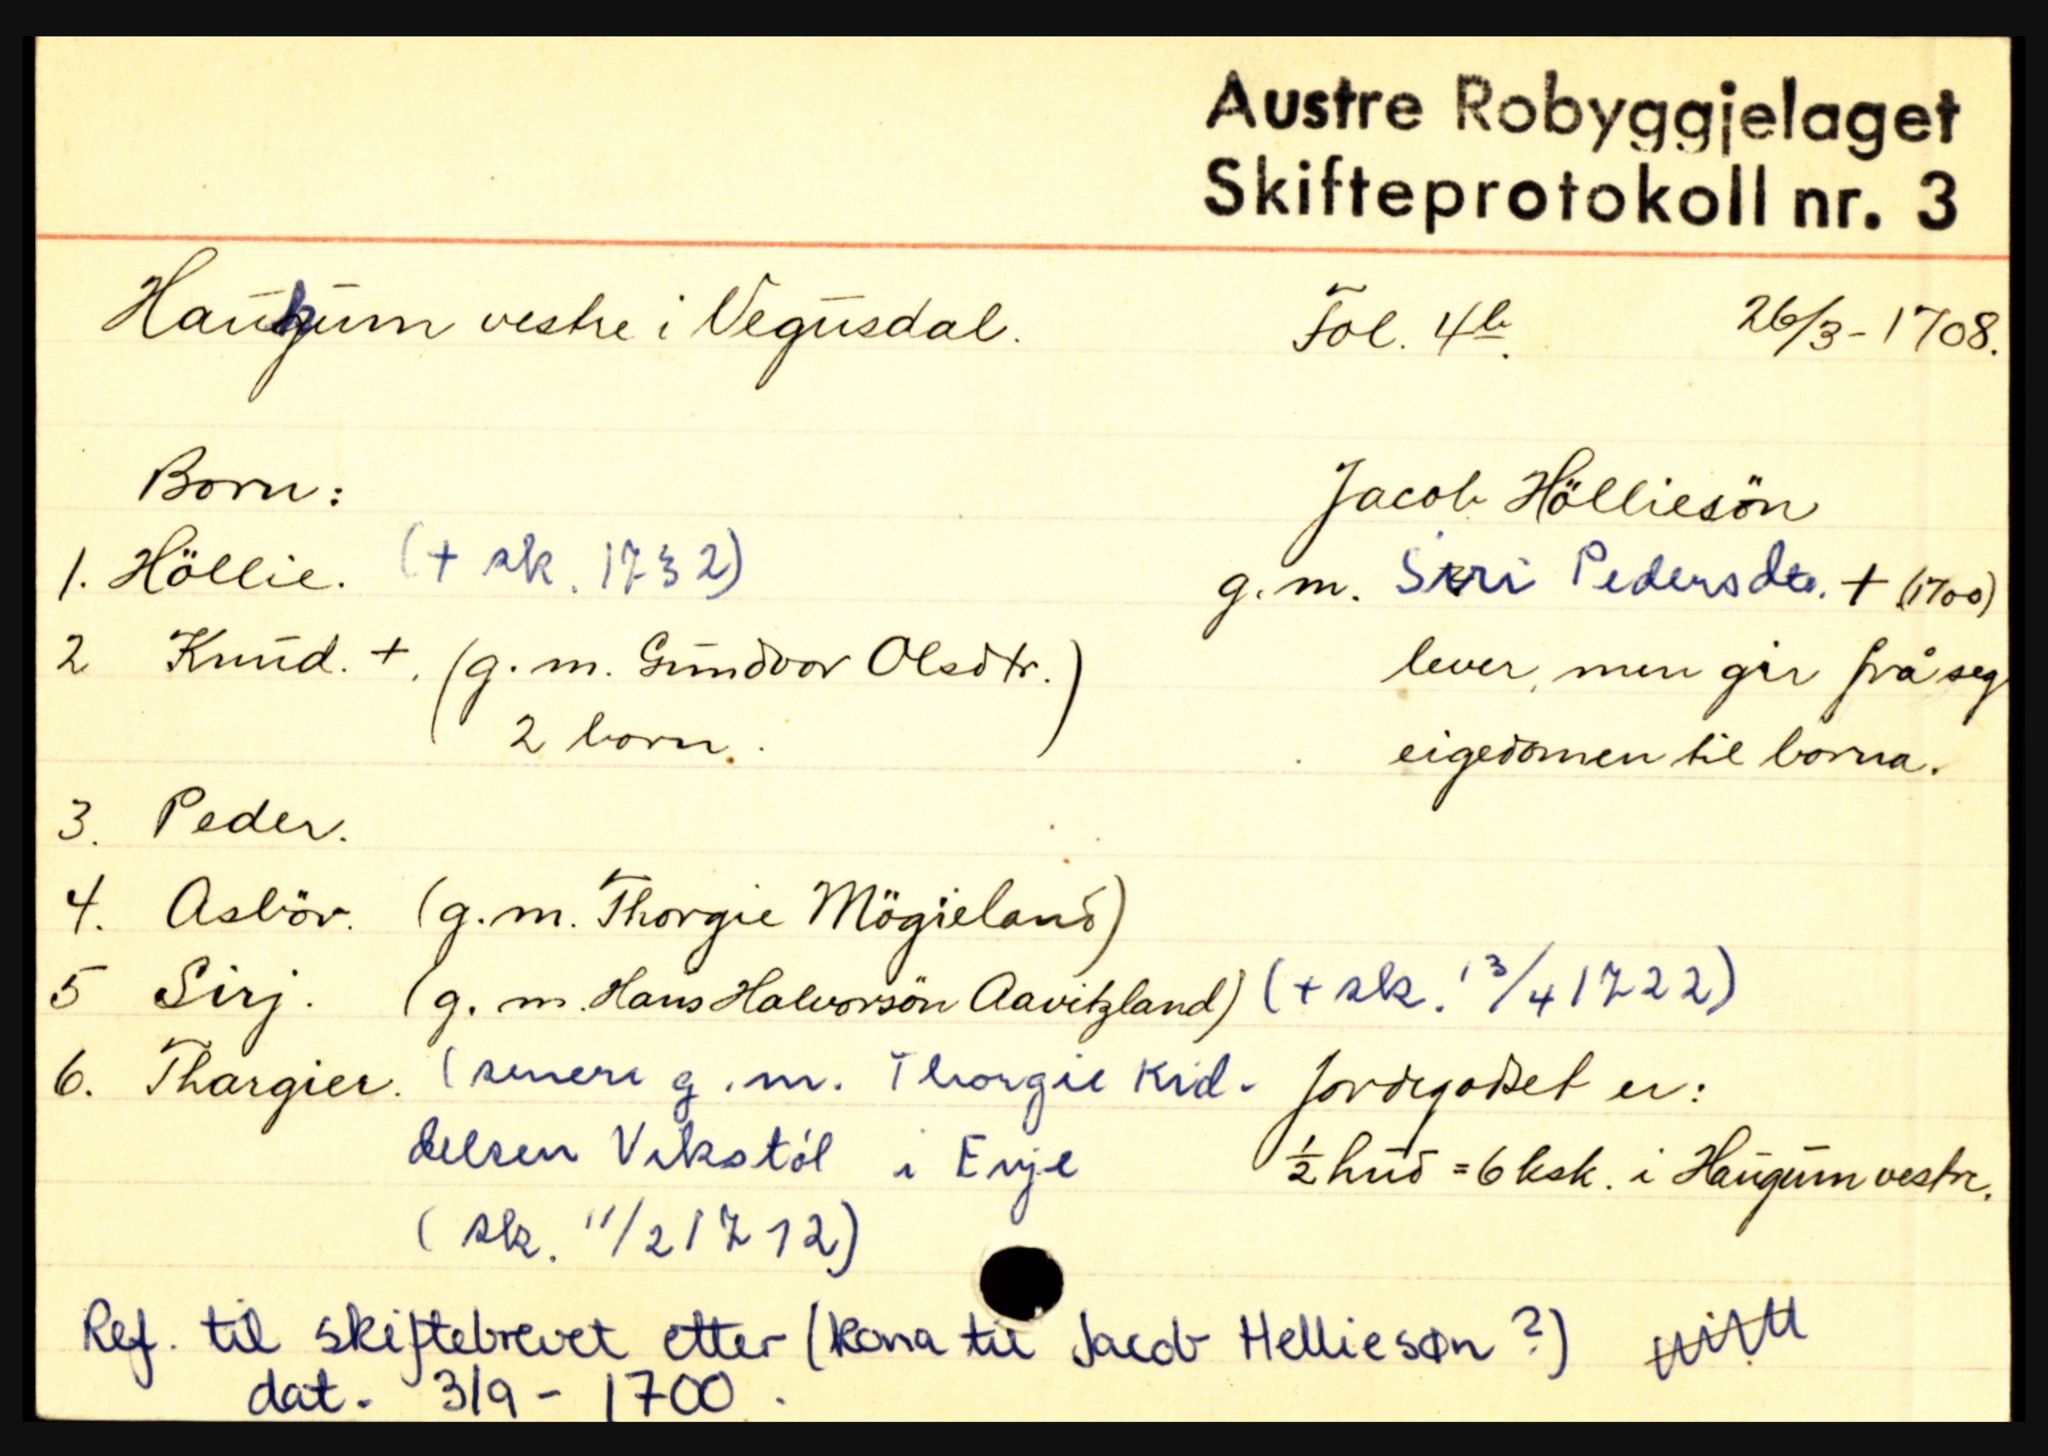 Austre Robyggjelaget
Skifteprotokoll nr. 3
Haukum vestre i Vegusdal. Fol. 4b. 26/3-1708.
Born: Jacob Hölliesön
1. Höllie. (+ sk. 1732) g. m. Siri Pedersdtr. + (1700)
2 Knud. +. (g. m. Gundvor Olsdtr.) lever, men gir frå seg
2 born. eigedomen til borna.
3. Peder.
4. Asbör. (g. m. Thorgie Mögieland)
5 Sirj. (g. m. Hans Halvorsön Aavitzland) (+ sk. 13/4 1722)
6. Thargier. (senere g. m. Thorgie Kid- Jordegodset er:
delsen Vikstøl i Evje ½ hud = 6 ksk. i Haugum vestre.
(sk. 11/2 1712)
Ref. til skiftebrevet etter (kona til Jacob Helliesøn ?)
dat. 3/9 - 1700.